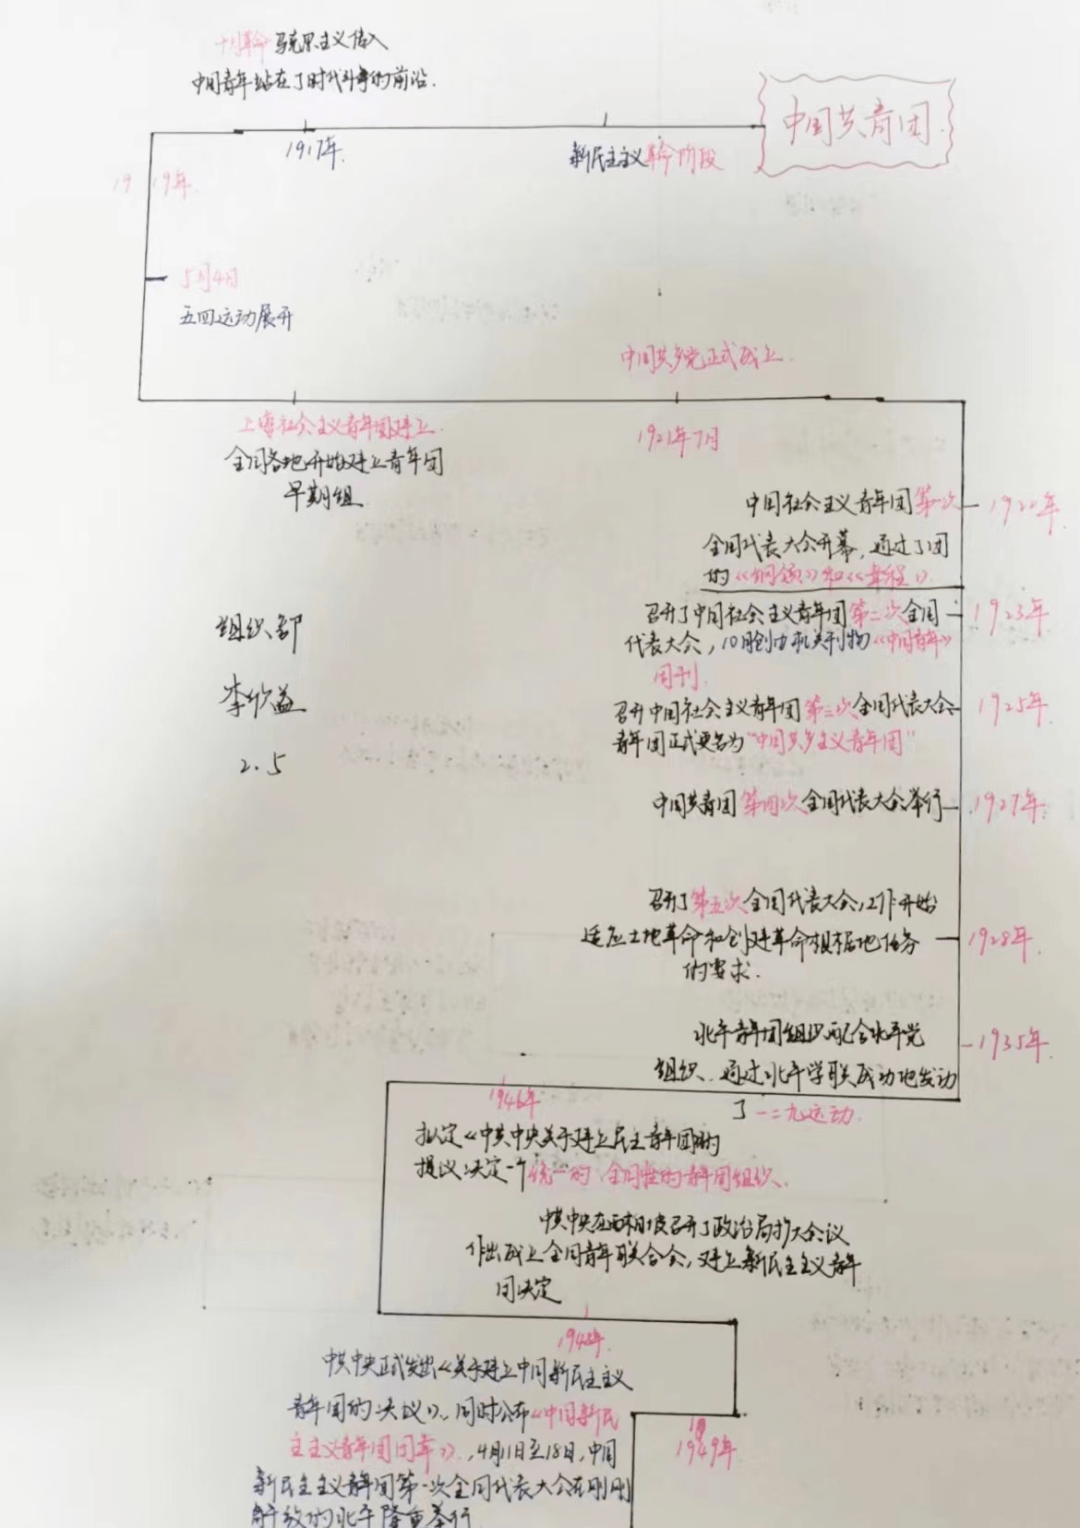 十月革命 马克思主义传入
中国青年站在了时代斗争的前沿.
中国共青团.
1917年.
新民主主义革命阶段
1919年.
5月4日
五四运动展开
中国共产党正式成立.
上海社会主义青年团建立.
1921年7月
全国各地开始建立青年团
早期组
中国社会主义青年团第一次
1922年.
全国代表大会开幕,通过了团
的《纲领》和《章程》.
召开了中国社会主义青年团第二次全国
1923年
代表大会,10月创办机关刊物《中国青年》
周刊.
组织部
李欣益
2.5
召开中国社会主义青年团第三次全国代表大会
1925年.
青年团正式更名为"中国共产主义青年团"
中国共青团第四次全国代表大会举行
1927年.
召开了第五次全国代表大会,工作开始
适应土地革命和创建革命根据地任务
1928年.
的要求.
北平青年团组织配合北平党
1935年.
组织.通过北平学联成功地发动
了一二九运动.
1946年
拟定《中共中央关于建立民主青年团的
提议》决定一个统一的 全国性的青年团组织.
中共中央在西柏坡召开了政治局扩大会议
作出成立全国青年联合会,建立新民主主义青年
团决定
1948年.
中共中央正式发出《关于建立中国新民主主义
青年团的决议》.同时公布《中国新民
主主义青年团团章》.,4月11日至18日,中国
1949年
新民主主义青年团第一次全国代表大会在刚刚
解放的北平隆重举行